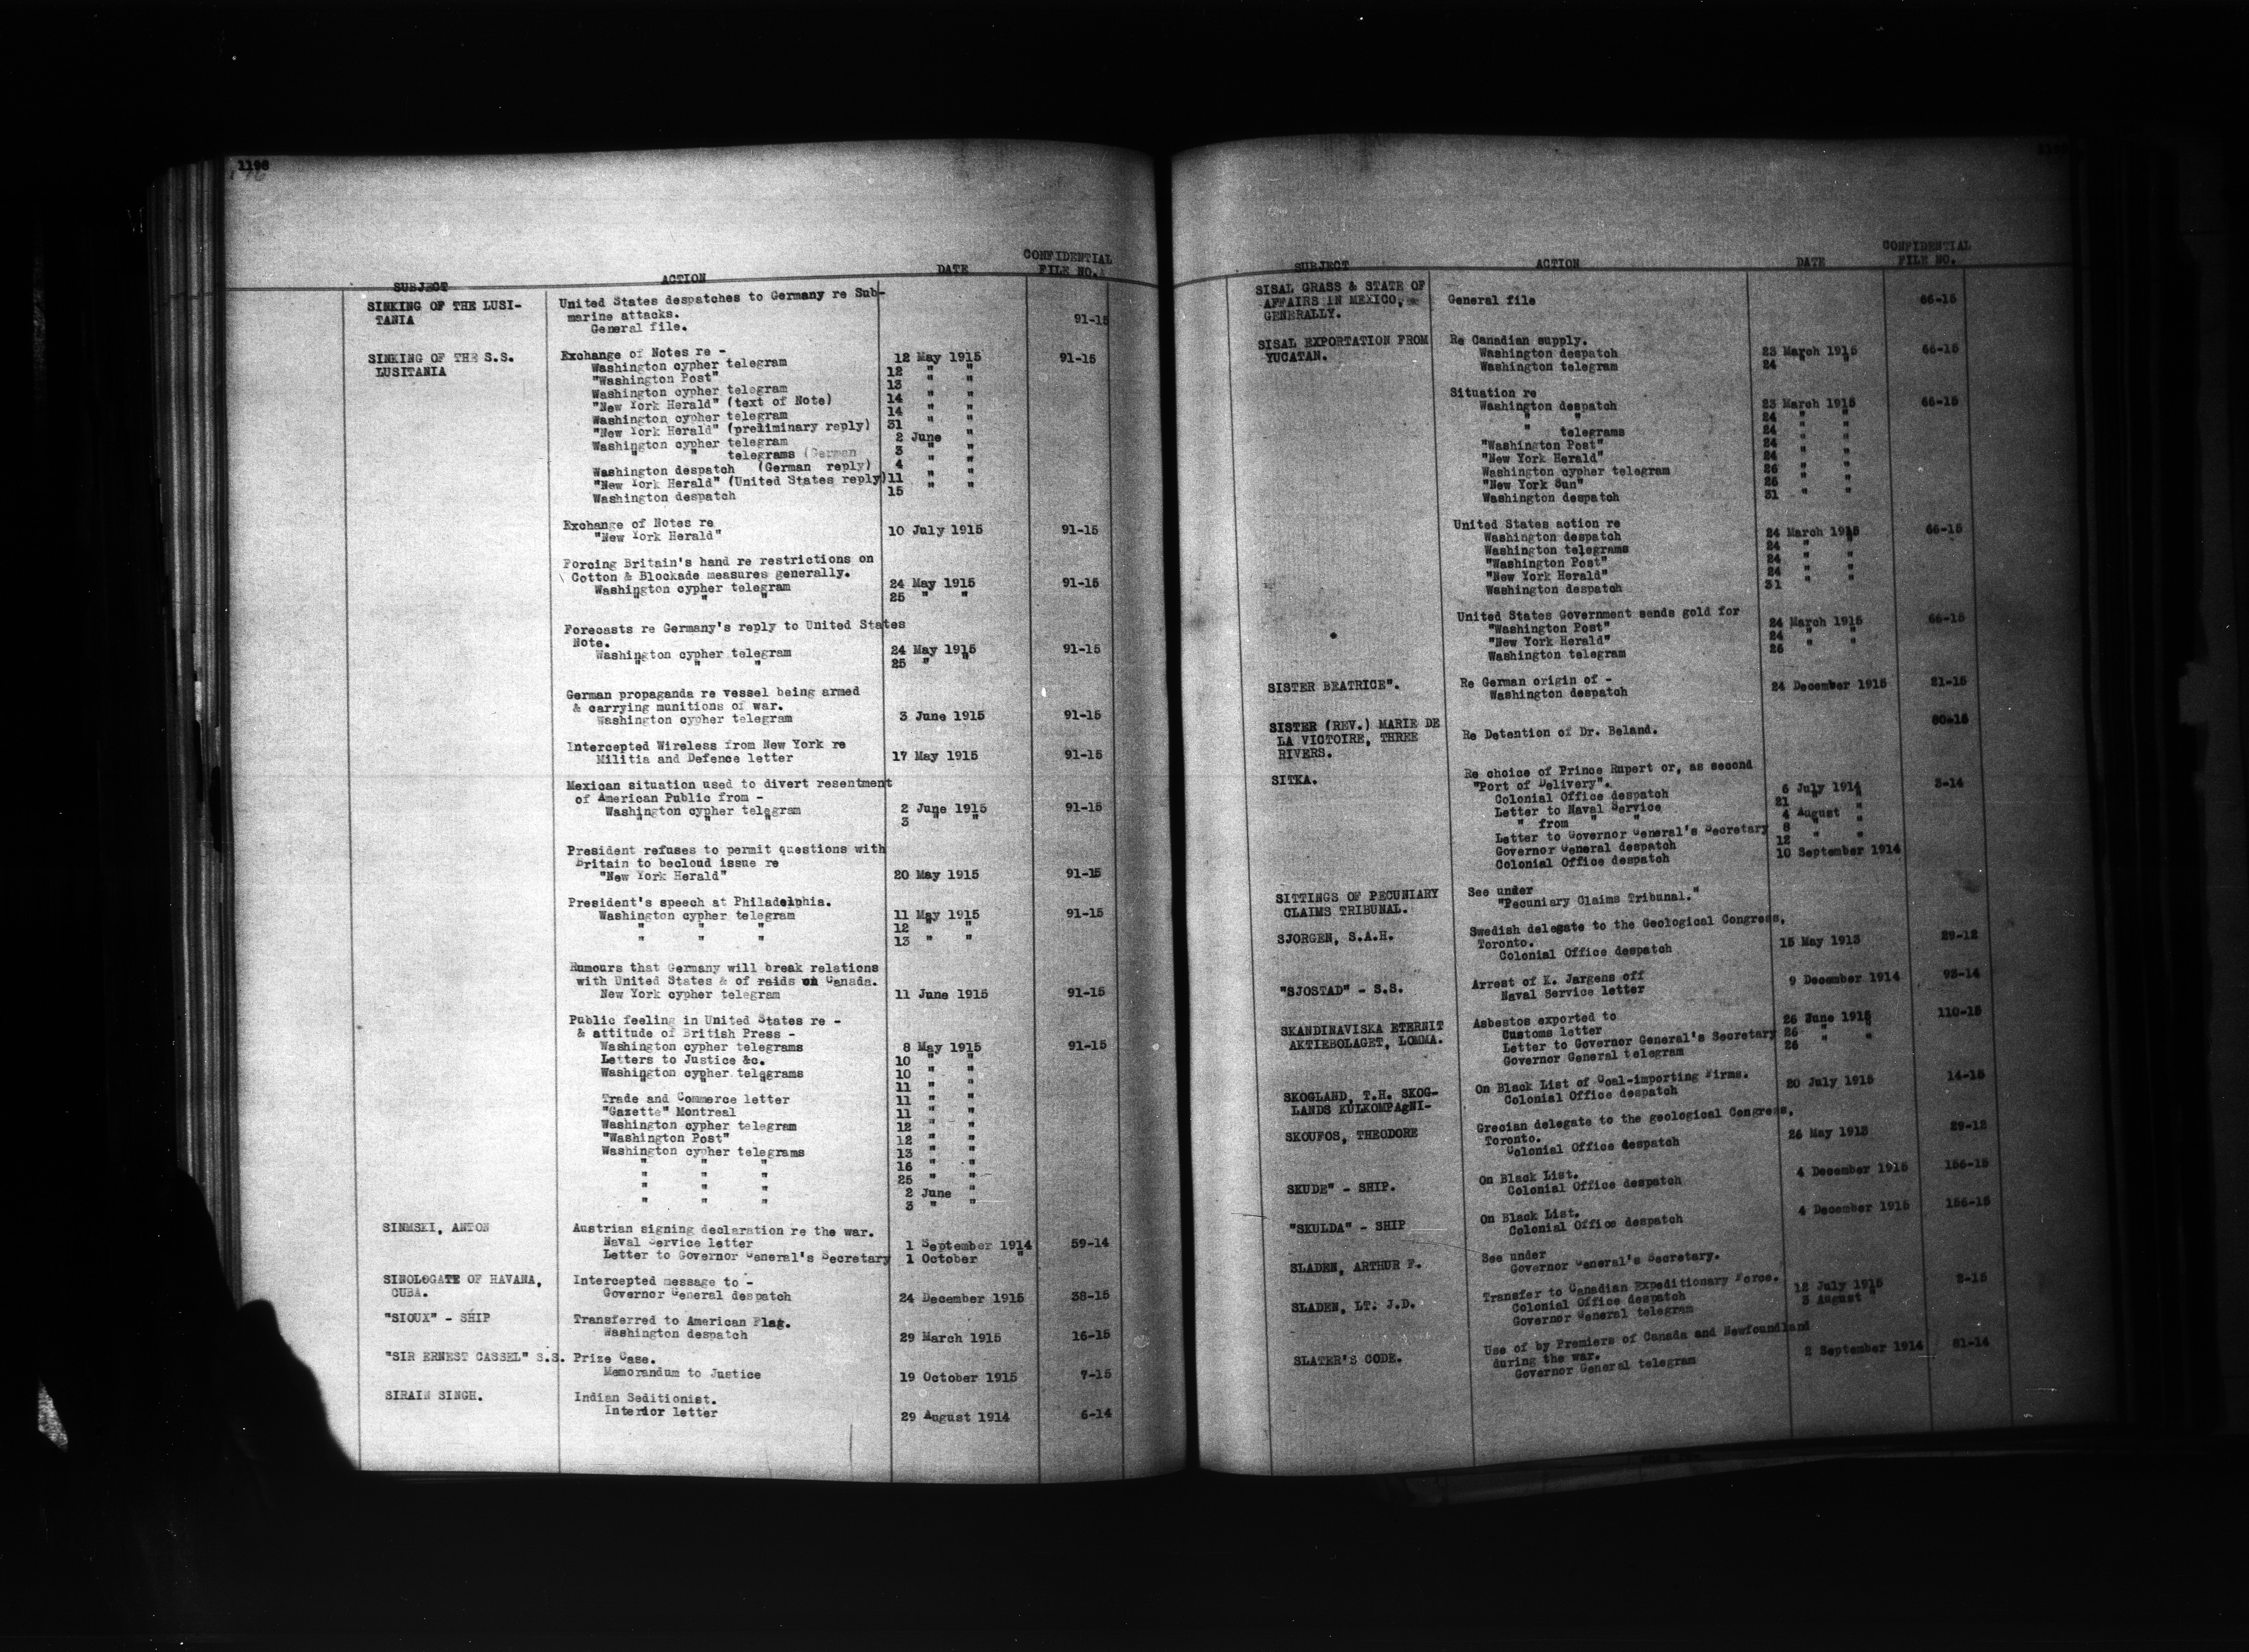 1198
SUBJECT ACTION DATE CONFIDENTIAL FILE NO.
SINKING OF THE LUSI- United States despatches to Germany re Sub-
TANIA marine attacks. 91-15
General file.
SINKING OF THE S.S. Exchange of Notes re - 12 May 1915 91-15
LUSITANIA Washington cypher telegram 12 " "
"Washington Post" 13 " "
Washington cypher telegram 14 " "
"New York Herald" (text of Note) 14 " "
Washington cypher telegram 31 " "
"New York Herald" (preliminary reply) 2 June "
Washington cypher telegram 3 " "
" " telegrams (German 4 " "
Washington despatch (German reply) 11 " "
"New York Herald" (United States reply) 15 " "
Washington despatch
Exchange of Notes re
"New York Herald" 10 July 1915 91-15
Forcing Britain's hand re restrictions on
Cotton & Blockade measures generally.
Washington cypher telegram 24 May 1915 91-15
" " " 25 " "
Forecasts re Germany's reply to United States
Note.
Washington cypher telegram 24 May 1915 91-15
" " " 25 " "
German propaganda re vessel being armed
& carrying munitions of war.
Washington cypher telegram 3 June 1915 91-15
Intercepted Wireless from New York re
Militia and Defence letter 17 May 1915 91-15
Mexican situation used to divert resentment
of American Public from -
Washington cypher telegram 2 June 1915 91-15
" " " 3 " "
President refuses to permit questions with
Britain to becloud issue re
"New York Herald" 20 May 1915 91-15
President's speech at Philadelphia.
Washington cypher telegram 11 May 1915 91-15
" " " 12 " "
" " " 13 " "
Rumours that Germany will break relations
with United States & of raids on Canada.
New York cypher telegram 11 June 1915 91-15
Public feeling in United States re -
& attitude of British Press -
Washington cypher telegrams 8 May 1915 91-15
Letters to Justice &c. 10 " "
Washington cypher telegrams 10 " "
" " " 11 " "
Trade and Commerce letter 11 " "
"Gazette" Montreal 11 " "
Washington cypher telegram 12 " "
"Washington Post" 12 " "
Washington cypher telegrams 13 " "
" " " 16 " "
" " " 25 " "
" " " 2 June "
" " " 3 " "
SINMSKI, ANTON Austrian signing declaration re the war.
Naval Service letter 1 September 1914 59-14
Letter to Governor General's Secretary 1 October "
SINOLOGATE OF HAVANA, Intercepted message to -
CUBA. Governor General despatch 24 December 1915 38-15
"SIOUX" - SHIP Transferred to American Flag.
Washington despatch 29 March 1915 16-15
"SIR ERNEST CASSEL" S.S. Prize Case.
Memorandum to Justice 19 October 1915 7-15
SIRAIN SINGH. Indian Seditionist.
Interior letter 29 August 1914 6-14
SUBJECT ACTION DATE CONFIDENTIAL FILE NO.
SISAL GRASS & STATE OF
AFFAIRS IN MEXICO, General file 66-15
GENERALLY.
SISAL EXPORTATION FROM Re Canadian supply.
YUCATAN. Washington despatch 23 March 1915 66-15
Washington telegram 24 " "
Situation re
Washington despatch 23 March 1915 66-15
" " 24 " "
" telegrams 24 " "
"Washington Post" 24 " "
"New York Herald" 24 " "
Washington cypher telegram 26 " "
"New York Sun" 26 " "
Washington despatch 31 " "
United States action re
Washington despatch 24 March 1915 66-15
Washington telegrams 24 " "
"Washington Post" 24 " "
"New York Herald" 24 " "
Washington despatch 31 " "
United States Government sends gold for
"Washington Post" 24 March 1915 66-15
"New York Herald" 24 " "
Washington telegram 26 " "
SISTER BEATRICE". Re German origin of -
Washington despatch 24 December 1915 21-15
SISTER (REV.) MARIE DE
LA VICTOIRE, THREE Re Detention of Dr. Beland. 80-15
RIVERS.
SITKA. Re choice of Prince Rupert or, as second
"Port of Delivery".
Colonial Office despatch 6 July 1914 3-14
Letter to Naval Service 21 " "
" from " " 4 August "
Letter to Governor General's Secretary 8 " "
Governor General despatch 12 " "
Colonial Office despatch 10 September 1914
SITTINGS OF PECUNIARY See under
CLAIMS TRIBUNAL. "Pecuniary Claims Tribunal."
SJORGEN, S.A.H. Swedish delegate to the Geological Congress,
Toronto.
Colonial Office despatch 15 May 1913 29-12
"SJOSTAD" - S.S. Arrest of K. Jargens off
Naval Service letter 9 December 1914 93-14
SKANDINAVISKA ETERNIT Asbestos exported to
AKTIEBOLAGET, LOMMA. Customs letter 26 June 1915 110-15
Letter to Governor General's Secretary 26 " "
Governor General telegram 26 " "
SKOGLAND, T.H. SKOG- On Black List of Coal-importing Firms.
LANDS KULKOMPAgNI- Colonial Office despatch 20 July 1915 14-15
SKOUFOS, THEODORE Grecian delegate to the geological Congress,
Toronto.
Colonial Office despatch 26 May 1913 29-12
SKUDE" - SHIP. On Black List.
Colonial Office despatch 4 December 1915 156-15
"SKULDA" - SHIP On Black List.
Colonial Office despatch 4 December 1915 156-15
SLADEN, ARTHUR F. See under
Governor General's Secretary.
SLADEN, LT. J.D. Transfer to Canadian Expeditionary Force.
Colonial Office despatch 12 July 1915 2-15
Governor General telegram 3 August "
SLATER'S CODE. Use of by Premiers of Canada and Newfoundland
during the war.
Governor General telegram 2 September 1914 81-14